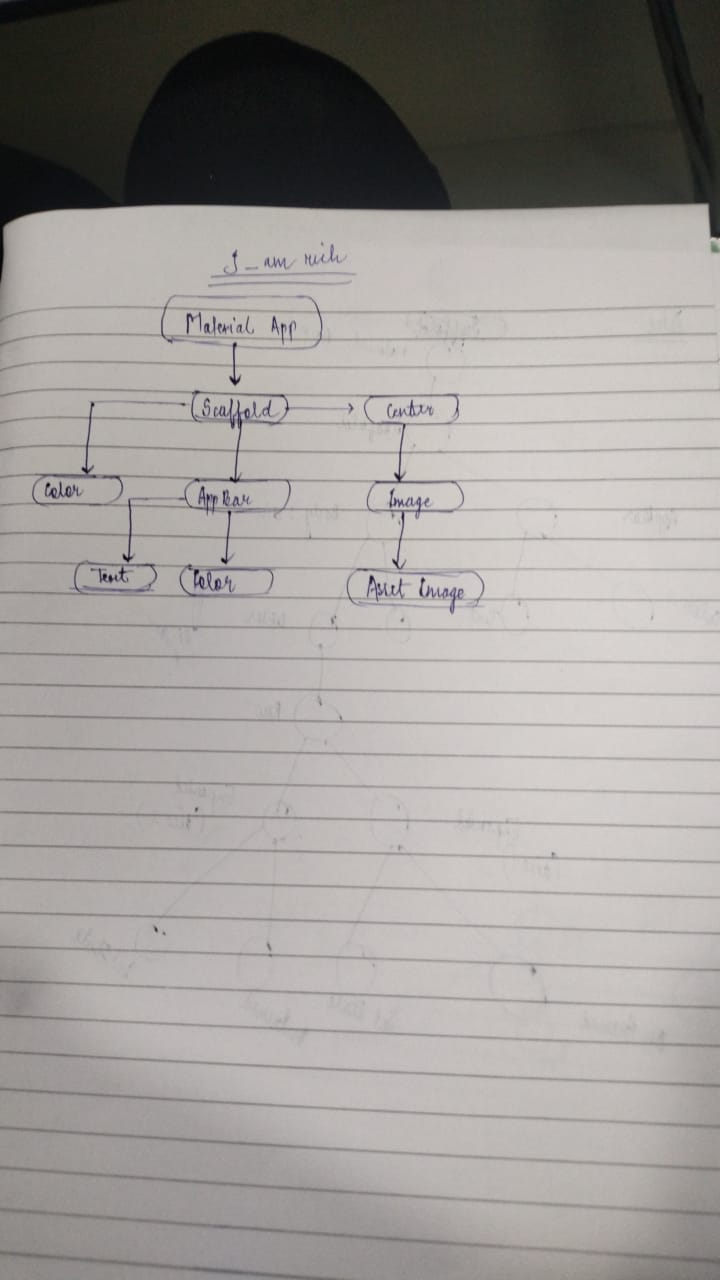 I_am rich
Material App
Scaffold
Center
Color
App Bar
Image
Text
Color
Asset Image